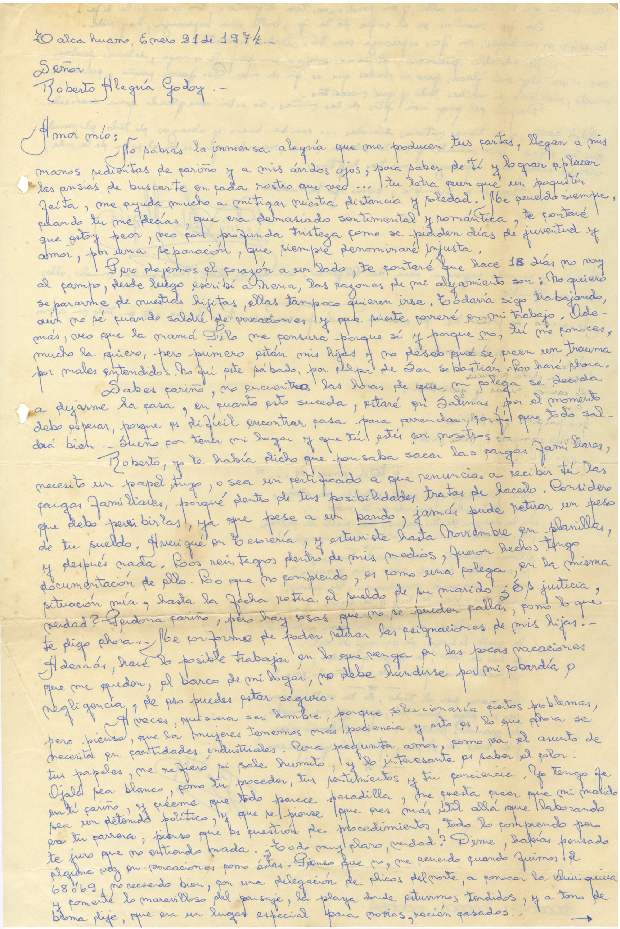 Talcahuano, Enero 21 de 1974.-
Señor
Roberto Alegría Godoy.-
Amor mío:
No sabrás la inmensa alegría que me producen tus cartas, llegan a mis
manos sedientas de cariño y a mis áridos ojos, para saber de tí y lograr aplacar
las ansias de buscarte en cada rostro que veo... ¡Tu letra aunque un poquitín
feita, me ayuda mucho a mitigar nuestra distancia y soledad! Me acuerdo siempre,
cuando tú me decías, que era demasiado sentimental y romántica, te contaré
que estoy peor, veo con profunda tristeza como se pierden días de juventud y
amor, por una separación, que siempre denominaré injusta.
Pero dejemos el corazón a un lado, te contaré que hace 18 días no voy
al campo, desde luego escribí a Nena, las razones de mi alejamiento son: No quiero
separarme de nuestras hijitas, ellas tampoco quieren irse. Todavía sigo trabajando,
aún no sé cuando saldré de vacaciones y que suerte correré en mi trabajo. Ade-
más, veo que la mamá me censura porque sí y porque no, tú me conoces,
mucho la quiero, pero primero están mis hijas y no deseo que se creen un trauma
por males entendidos. No fuí este sábado, por culpa de San Sebastián. Lo haré ahora.
Sabes cariño, no encuentro las horas de que mi colega se decida
a dejarme la casa, en cuanto esto suceda, estaré en Salinas; por el momento
debo esperar, porque es difícil encontrar casa para arrendar, confío que todo sal-
drá bien... Sueño con tener mi hogar y que tú estés con nosotros.-
Roberto, yo te había dicho que pensaba sacar las cargas familiares,
necesito un papel tuyo, o sea un certificado a que renuncias a recibir tú las
cargas familiares, porqué dentro de tus posibilidades tratas de hacerlo. Considero
que debo percibirlas, ya que pese a un bando, jamás pude retirar un peso
de tu sueldo. Averigüé en Tesorería, y estuviste hasta Noviembre en planillas,
y después nada. Los reintegros dentro de mis medios, fueron hechos tengo
documentación de ello. Lo que no comprendo, es como una colega, en la misma
situación mía, hasta la fecha retira el sueldo de su marido ¿Es justicia,
verdad? Perdona cariño, pero hay cosas que no se pueden callar, como lo que
te digo ahora... Me conformo de poder retirar las asignaciones de mis hijas.-
Además, haré lo posible trabajar, en lo que venga en las pocas vacaciones
que me queden, el barco de mi hogar, no debe hundirse por mi cobardía o
negligencia, de eso puedes estar seguro.
A veces, quisiera ser hombre, porque solucionaría ciertos problemas,
pero pienso, que las mujeres tenemos más paciencia y esto es lo que ahora se
necesita en cantidades industriales. Una preguntita amor, como va el asunto de
tus papeles, me refiero si sale humito, y lo interesante es saber el color.
Ojalá sea blanco, como tu proceder, tus sentimientos y tu conciencia. Yo tengo fe
en tí cariño, y créeme que todo parece pesadilla, me cuesta creer que mi marido
sea un detenido político, y que se piense que eres más útil allá que laborando
en tu carrera; pienso que es cuestión de procedimientos. Todo lo comprendo pero
te juro que no entiendo nada. ¿Todo muy claro, verdad? Dime, ¿habías pensado
alguna vez en vacaciones como éstas. Pienso que no, me acuerdo cuando fuimos el
68 ó 69, no recuerdo bien, con una delegación de chicos del norte, a conocer la Quiriquina
y comenté lo maravilloso del paisaje, la playa donde estuvimos tendidos, y a tono de
broma dije, que era un lugar especial para novios, recién casados...
→